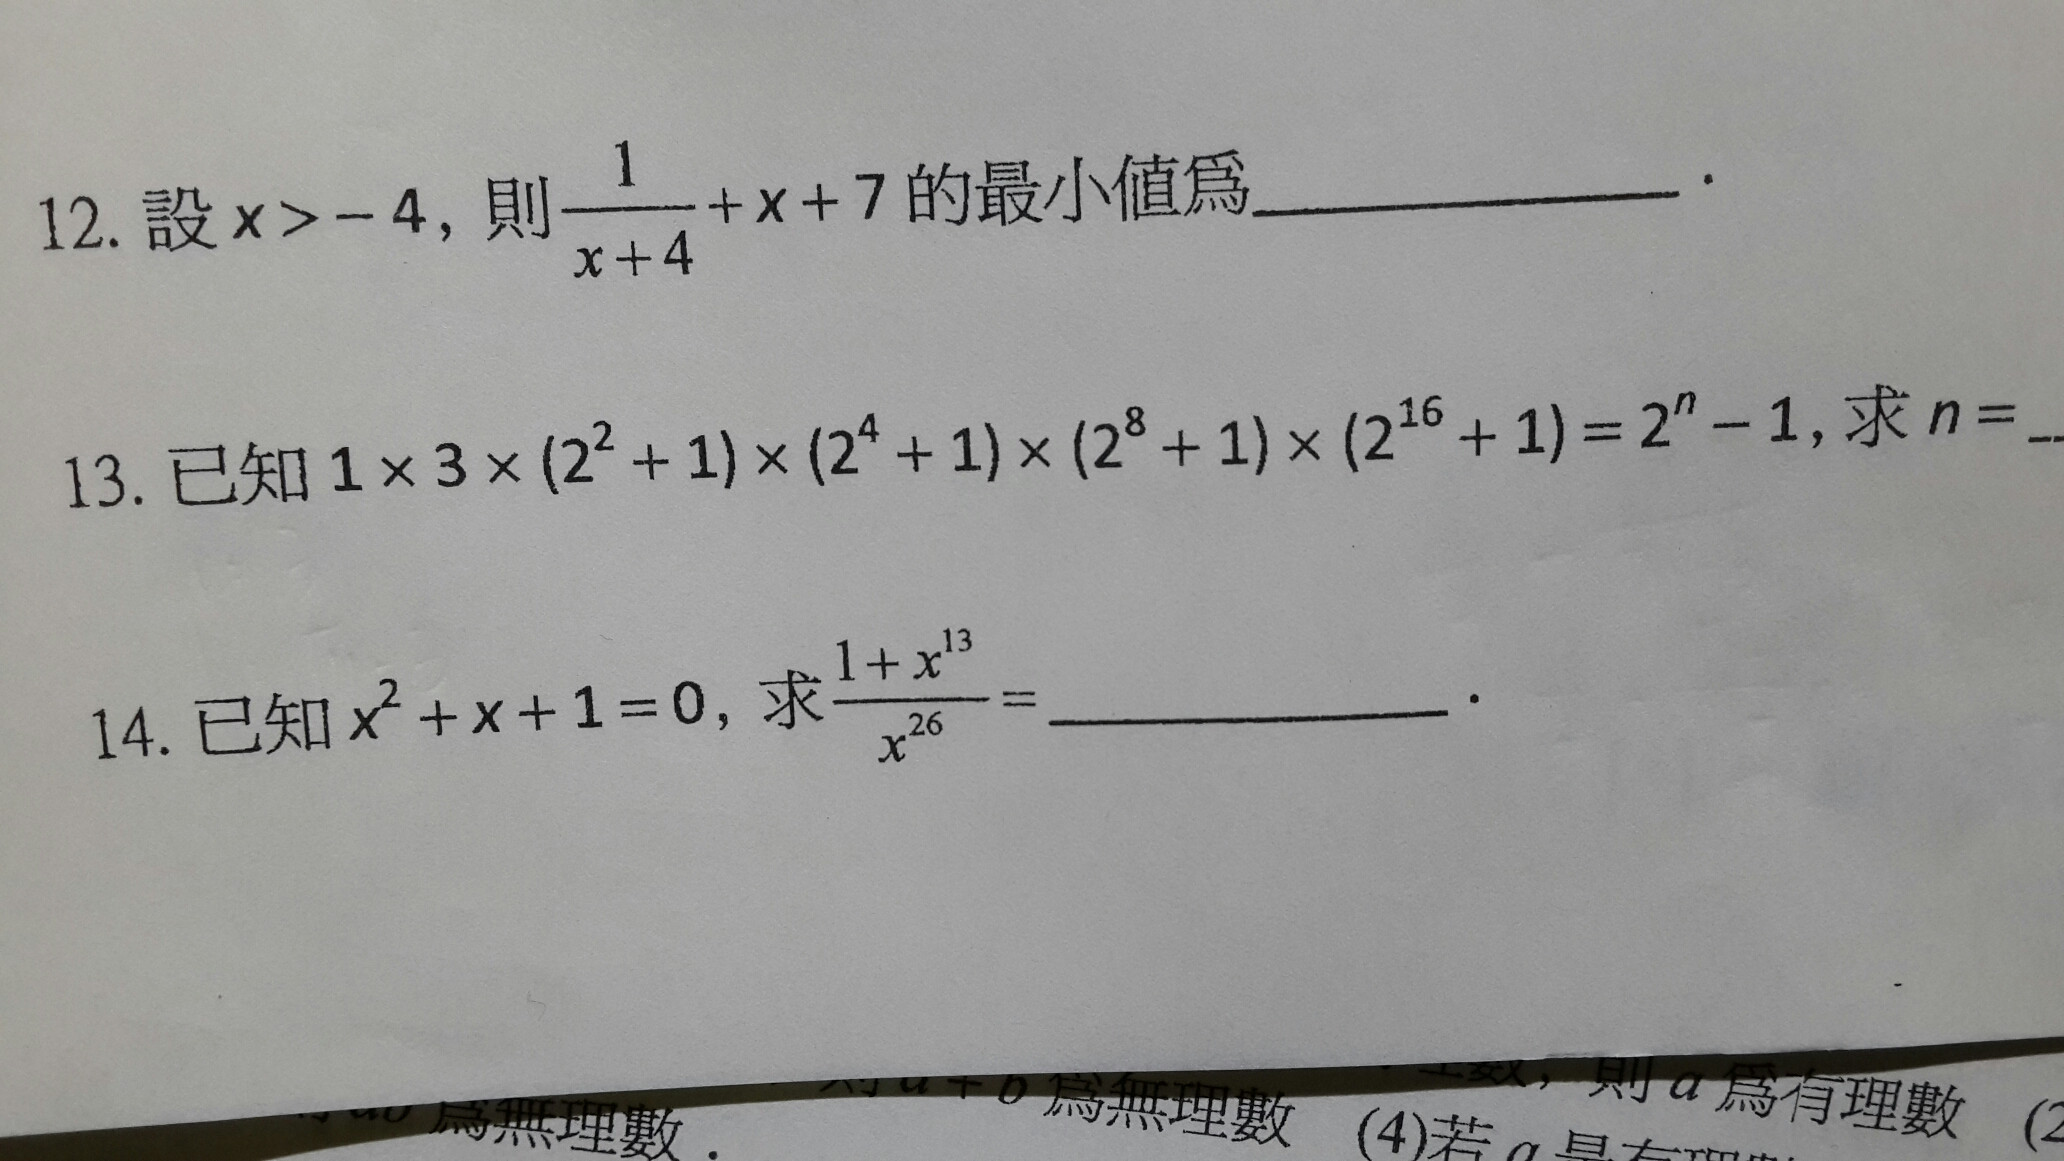 12. 設 x > − 4, 則 1/(x+4) + x + 7 的最小値爲__________.
13. 已知 1 × 3 × (2² + 1) × (2⁴ + 1) × (2⁸ + 1) × (2¹⁶ + 1) = 2ⁿ − 1, 求 n = _
14. 已知 x² + x + 1 = 0, 求 (1 + x¹³)/x²⁶ = __________.
則 a 爲有理數 (2
ab 爲無理數. 則 a + b 爲無理數 (4)若 a 是有理數